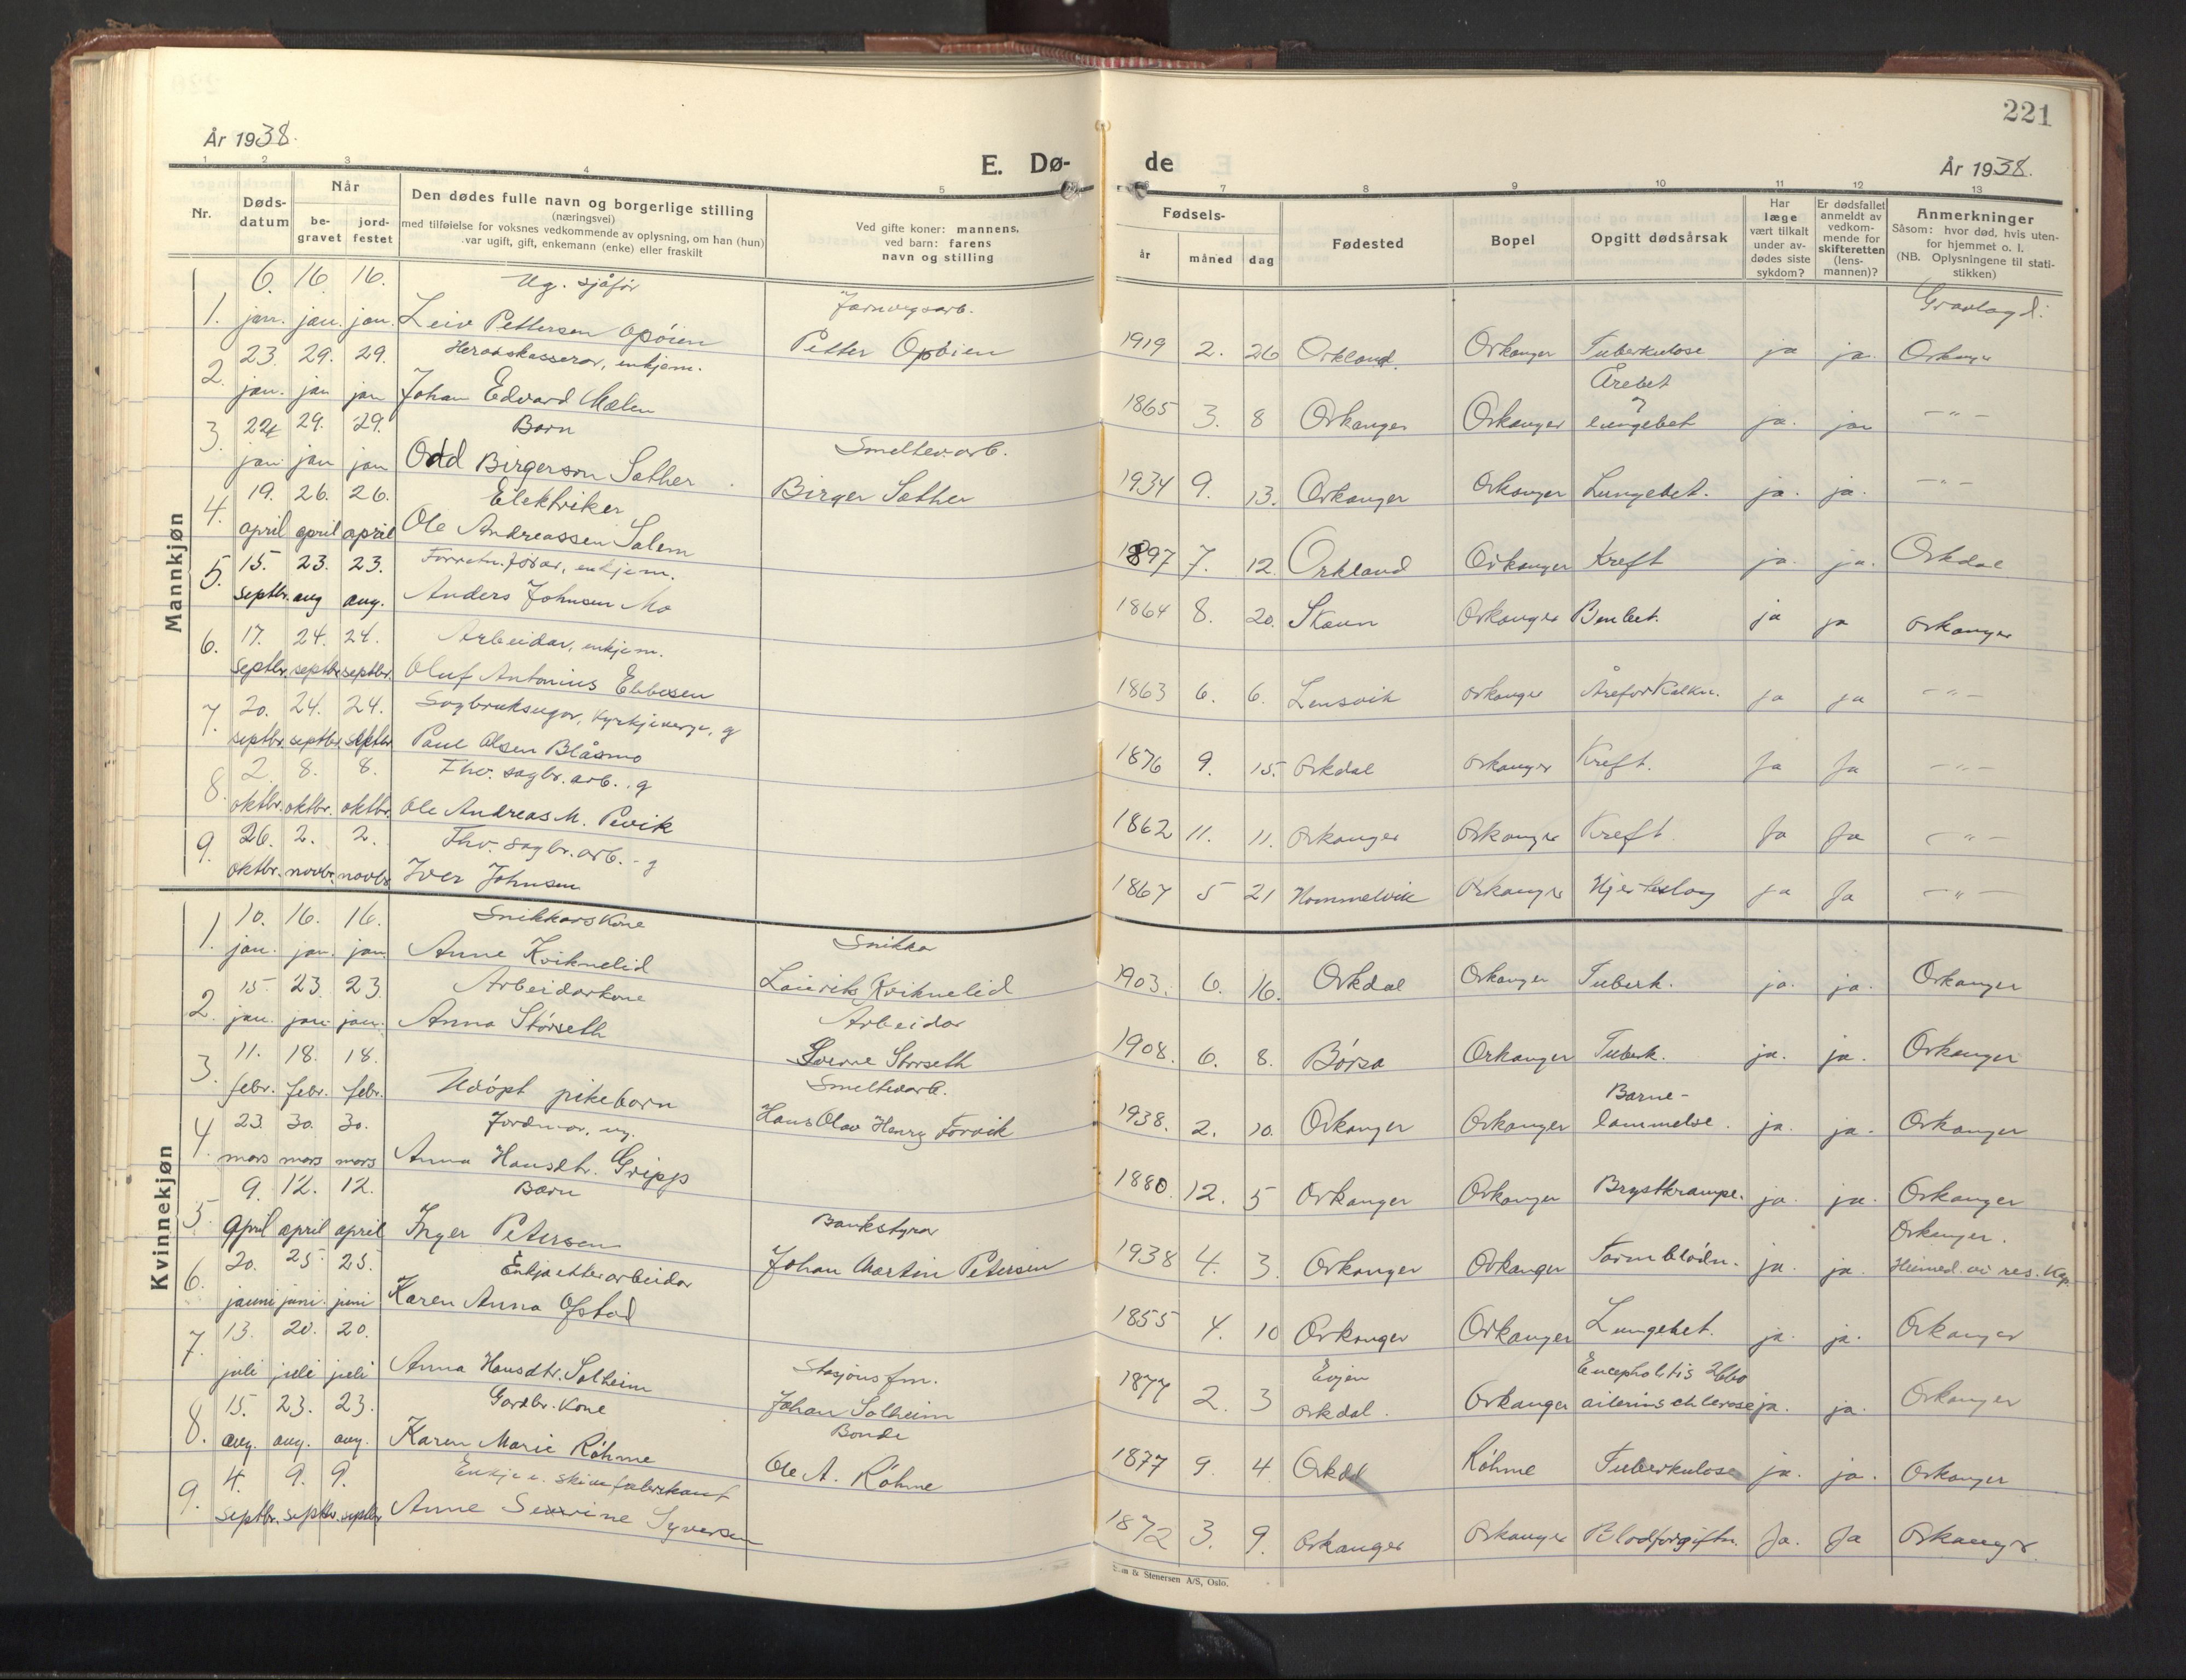 221
År 1938.
E. Dø-
de
År 1938.
1 2 3 4 5
6 7 8 9 10 11 12 13
Nr.
Døds-
datum
Når
be-
gravet
jord-
festet
Den dødes fulle navn og borgerlige stilling
(næringsvei)
med tilføielse for voksnes vedkommende av oplysning, om han (hun)
var ugift, gift, enkemann (enke) eller fraskilt
Ved gifte koner: mannens,
ved barn: farens
navn og stilling
Fødsels-
år
måned
dag
Fødested
Bopel
Opgitt dødsårsak
Har
læge
vært tilkalt
under av-
dødes siste
sykdom?
Er dødsfallet
anmeldt av
vedkom-
mende for
skifteretten
(lens-
mannen)?
Anmerkninger
Såsom: hvor død, hvis uten-
for hjemmet o. l.
(NB. Oplysningene til stati-
stikken)
Mannkjøn
6. 16. 16. Ug. sjåfør Jarnvegsarb. Gravlagd:
1. jan. jan. jan. Leiv Pettersen Opöien Petter Opöien 1919 2. 26 Orkland. Orkanger Tuberkulose ja ja. Orkanger
23. 29. 29. Heradskasserar, enkjem. Årebet
2. jan. jan jan Johan Edvard Mælen 1865 3. 8 Orkanger Orkanger lungebet ja. ja — " —
24 29. 29. Barn Smeltev.arb.
3. jan jan jan Odd Birgerson Sæther Birger Sæther 1934 9. 13. Orkanger Orkanger Lungebet. ja. ja. — " —
19. 26. 26. Elektriker
4. april april april Ole Andreassen Salem 1897 7. 12. Orkland Orkanger Kreft ja. ja. Orkdal
15. 23. 23. Forretn.förar, enkjem.
5. septbr. aug aug. Anders Johnsen Mo 1864 8. 20. Skaun Orkanger Benbet. ja ja Orkanger
17. 24. 24. Arbeidar, enkjem.
6. septbr. septbr septbr. Oluf Antonius Ebbesen 1863 6. 6. Lensvik Orkanger Åreforkalkn. ja ja — " —
20. 24. 24. Sagbrukseigar, kyrkjeverge, g
7. septbr. septbr. septbr. Paul Olsen Blåsmo 1876 9. 15. Orkdal Orkanger Kreft. Ja Ja — " —
2. 8. 8. Fhv. sagbr. arb. . g
8. oktbr. oktbr. oktbr. Ole Andreas M. Pevik 1862 11. 11. Orkanger Orkanger Kreft. Ja Ja — " —
26. 2. 2. Fhv. sagbr. arb. - g
9. oktbr. novbr. novbr. Iver Johnsen 1867 5 21 Hommelvik Orkanger Hjerteslag ja Ja — " —
Kvinnekjøn
10. 16. 16. Snikkarskone Snikkar
1. jan. jan. jan Anne Kviknelid Lauritz Kviknelid 1903. 6. 16. Orkdal Orkanger Tuberk. ja. ja. Orkanger
15 23. 23. Arbeidarkone Arbeidar
2. jan. jan. jan. Anna Störseth Sverre Störseth 1908. 6. 8. Börsa Orkanger Tuberk. ja. ja. Orkanger
11. 18. 18. Smeltevarb. Barne-
3. febr. febr. febr. Udöpt pikebarn Hans Olav Henry Forvik 1938. 2. 10. Orkanger Orkanger lammelse. ja. ja. Orkanger
23. 30. 30. Jordmor, ug.
4. mars mars mars Anna Hansdtr. Gripp 1880. 12. 5 Orkanger Orkanger Brystkrampe. ja. ja. Orkanger
9. 12. 12. Barn Bankstyrar Orkanger.
5. april april april Inger Petersen Johan Martin Petersen 1938 4. 3. Orkanger Orkanger Tarmblödn. ja. ja. Heimed. av res. kap.
20. 25. 25. Enkja etter arbeidar
6. juni juni. juni Karen Anna Ofstad 1855 4. 10 Orkanger Orkanger Lungebet. ja. ja. Orkanger
13. 20. 20. Stasjonsfm. Evjen Encephalitis
7. juli juli juli Anna Hansdtr. Solheim Johan Solheim 1877 2. 3 Orkdal. Orkanger ja. ja. Orkanger
15. 23. 23. Gardbr. kone Bonde
8. aug. aug. aug. Karen Marie Röhme Ole A. Röhme 1877 9. 4 Orkdal Röhme Tuberkulose ja. ja. Orkanger
4. 9. 9. Enkje e. skinnfabrikant
9. septbr. septbr. septbr Anne Severine Syversen 1872 3. 9. Orkanger Orkanger Blodforgiftn. Ja. Ja Orkanger
& Stenersen A/S, Oslo.